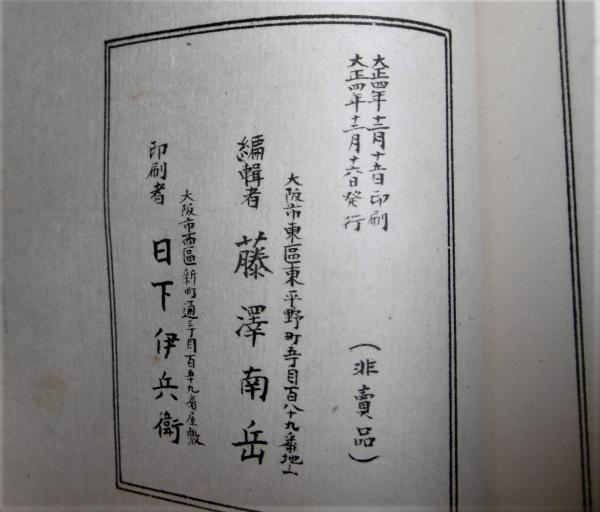 大正四年十二月十五日印刷
大正四年十二月十六日発行
(非賣品)
大阪市東區東平野町五丁目百八十九番地ノ上
編輯者 藤澤南岳
大阪市西區新町通三丁目百五十九番屋敷
印刷者 日下伊兵衛